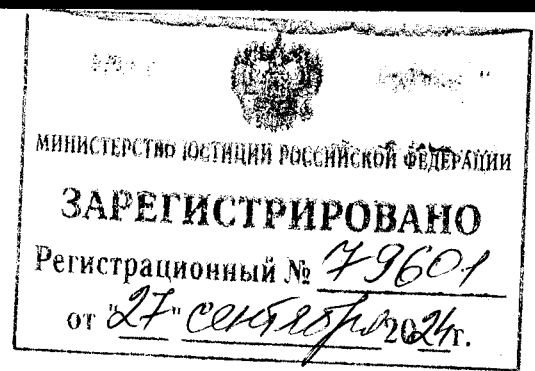 МИНИСТЕРСТВО ЮСТИЦИИ РОССИЙСКОЙ ФЕДЕРАЦИИ
ЗАРЕГИСТРИРОВАНО
Регистрационный № 79601
от "27" сентября 2024г.